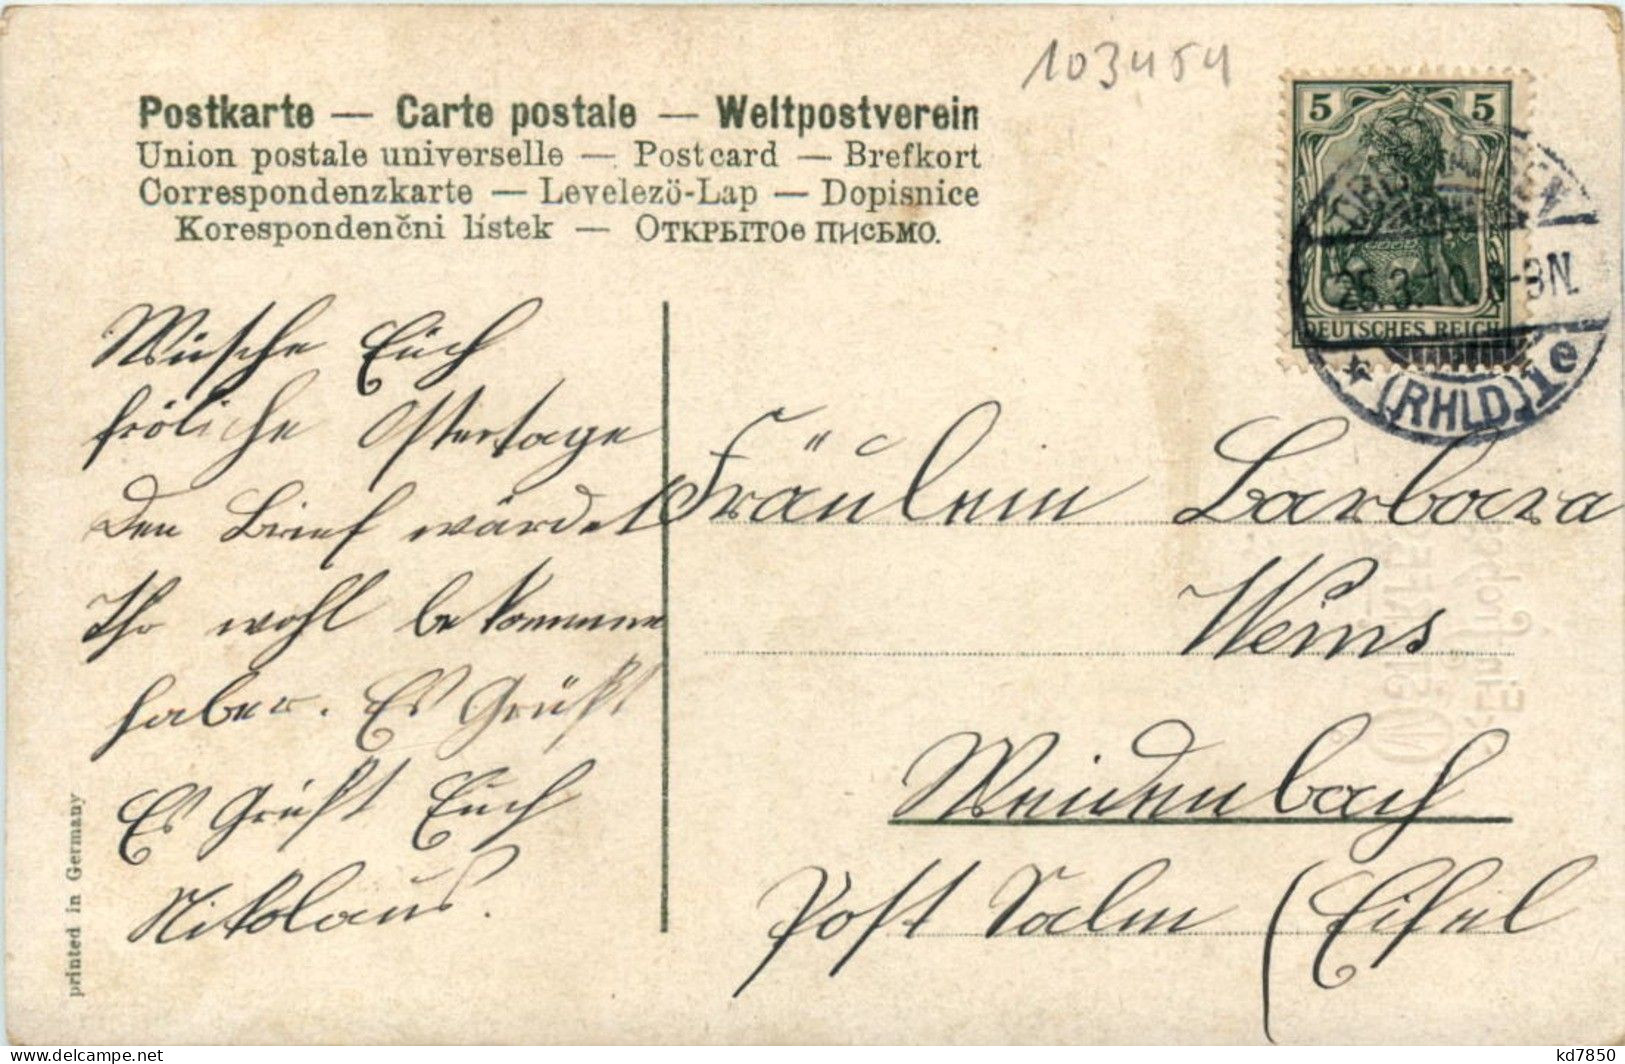 103454
Postkarte — Carte postale — Weltpostverein
Union postale universelle — Postcard — Brefkort
Correspondenzkarte — Levelezö-Lap — Dopisnice
Korespondenčni lístek — Открытое письмо.
5 5
DEUTSCHES REICH
25.3.10. -8N.
* (RHLD) 1e
Wüsche Eüch
fröliche Ostertage
Den Brief wärdet
Ihr wohl bekommen
haben. Es Grüßt
Es Grüßt Euch
Nikolaus.
Fräulein Barbara
Weins
Weidenbach
Post Salm (Eifel
printed in Germany
kd7850